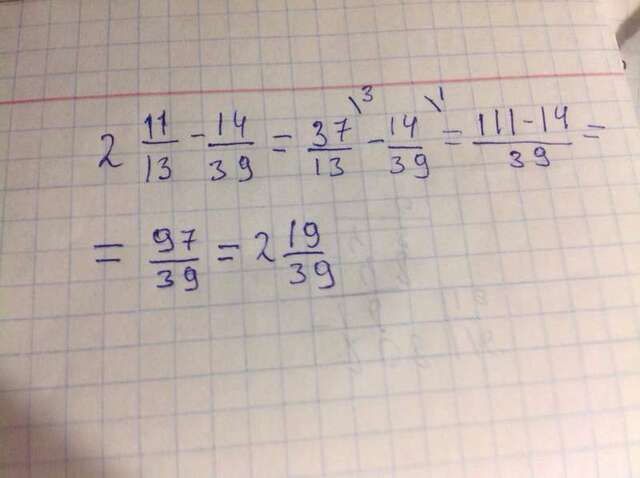 2 11/13 - 14/39 = 37/13 \3 - 14/39 \1 = 111-14/39 =
= 97/39 = 2 19/39